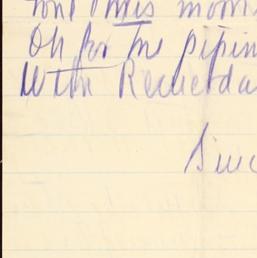 this morn
Oh for the pipin
With Recuerda
Since